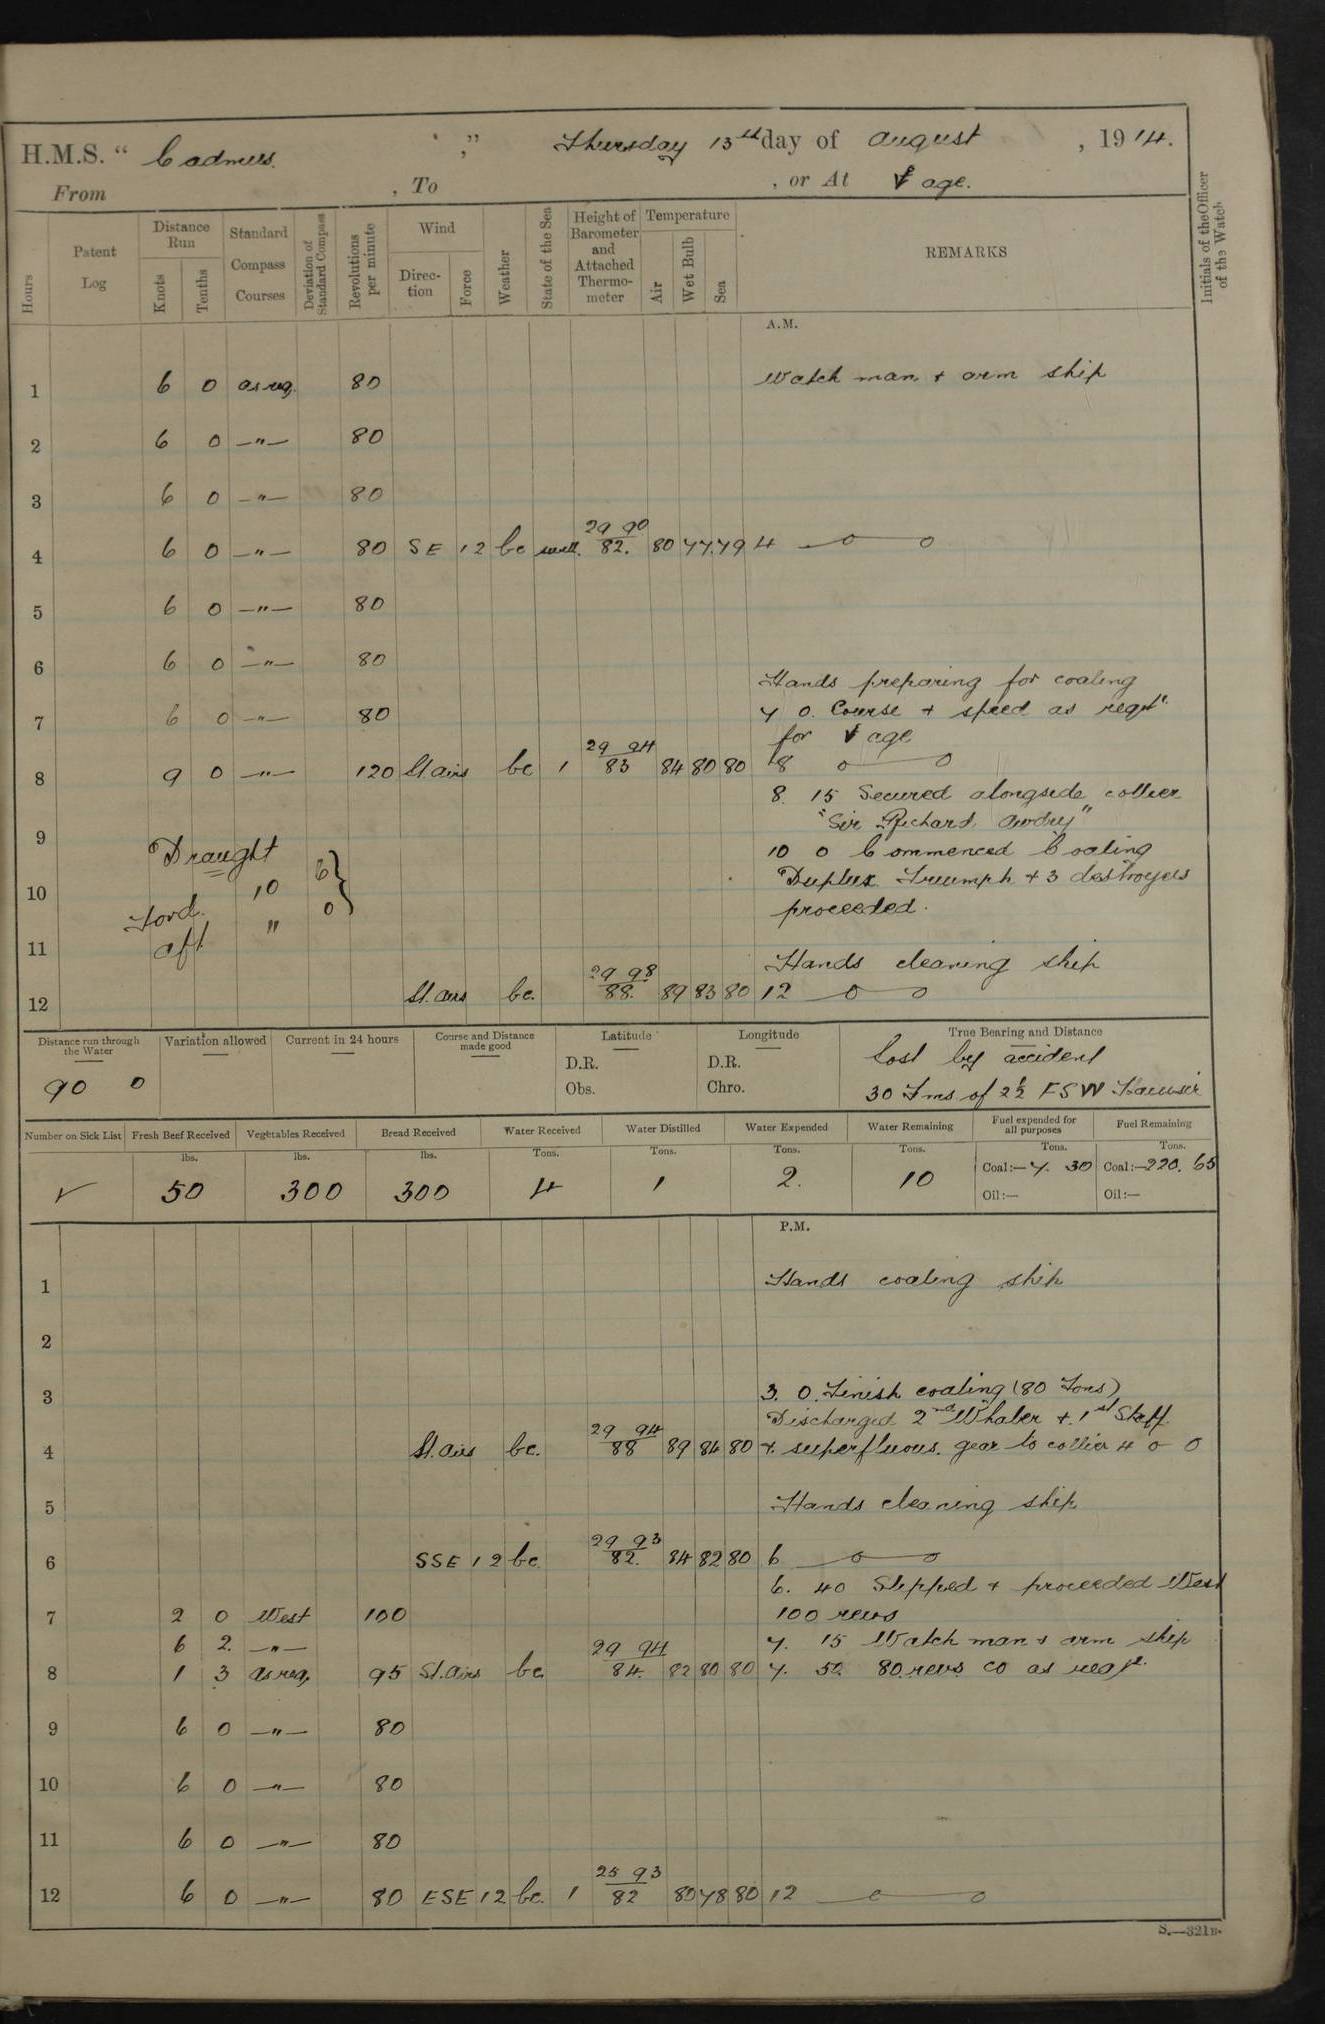 H.M.S. “ Cadmus ,” Thursday 13th day of August , 1914.
From , To , or At age.
Hours
Patent Log
Distance Run
Knots
Tenths
Standard Compass Courses
Deviation of Standard Compass
Revolutions per minute
Wind
Direction
Force
Weather
State of the Sea
Height of Barometer and Attached Thermometer
Temperature
Air
Wet Bulb
Sea
REMARKS
Initials of the Officer of the Watch
A.M.
1 6 0 as req. 80 Watch man + arm ship
2 6 0 —"— 80
3 6 0 —"— 80
29 90
4 6 0 —"— 80 SE 12 bc swell. 82. 80 77. 79 4 —o—o
5 6 0 —"— 80
6 6 0 —"— 80
Hands preparing for coaling
7 6 0 —"— 80 7 0. Course + speed as reqd.
for age
29 94
8 9 0 —"— 120 Lt. airs bc 1 83 84 80 80 8 o—o
8. 15 Secured alongside collier
9 "Sir Richard Awdry"
Draught
10 0 Commenced Coaling
10 Ford. 10 6 } Duplex Triumph + 3 destroyers
aft " 0 } proceeded.
11 Hands cleaning ship
29 98
12 Lt. airs bc. 88. 89 83 80 12 —o—o
Distance run through the Water
Variation allowed
Current in 24 hours
Course and Distance made good
Latitude
Longitude
True Bearing and Distance
90 0 D.R. D.R. Lost by accident
Obs. Chro. 30 Fms of 2½ FSW
Number on Sick List
Fresh Beef Received
Vegetables Received
Bread Received
Water Received
Water Distilled
Water Expended
Water Remaining
Fuel expended for all purposes
Fuel Remaining
lbs. lbs. lbs. Tons. Tons. Tons. Tons. Tons. Tons.
50 300 300 4 1 2. 10 Coal:— 7. 30 Coal:— 220. 65
Oil:— Oil:—
P.M.
1 Hands coaling ship
2
3 3. 0. Finish coaling (80 Tons)
Discharged 2nd Whaler + 1st Skiff
29 94
4 Lt. airs bc. 88 89 84 80 + superfluous gear to collier 4 o o
5 Hands cleaning ship
29 93
6 SSE 12 bc. 82. 84 82 80 6 —o—o
6. 40 Slipped + proceeded West
7 2 0 West 100 100 revs
6 2. —"— 7. 15 Watch man + arm ship
29 94
8 1 3 as req. 95 Lt. airs bc 84. 82 80 80 7. 50. 80. revs. co as reqd.
9 6 0 —"— 80
10 6 0 —"— 80
11 6 0 —"— 80
25 93
12 6 0 —"— 80 ESE 12 bc. 1 82 80 78 80 12 —o—o
S.—321B.